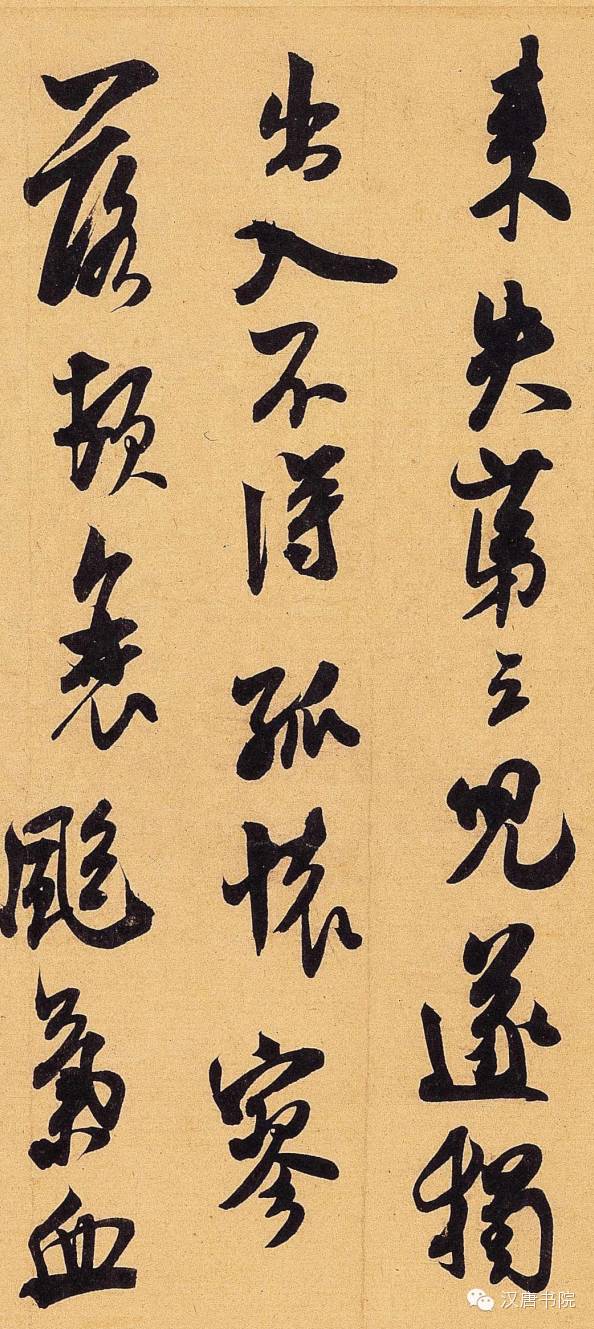 来失苐三兒遂獨
出入不得孤懷寥
落頓衰颯氣血
汉唐书院